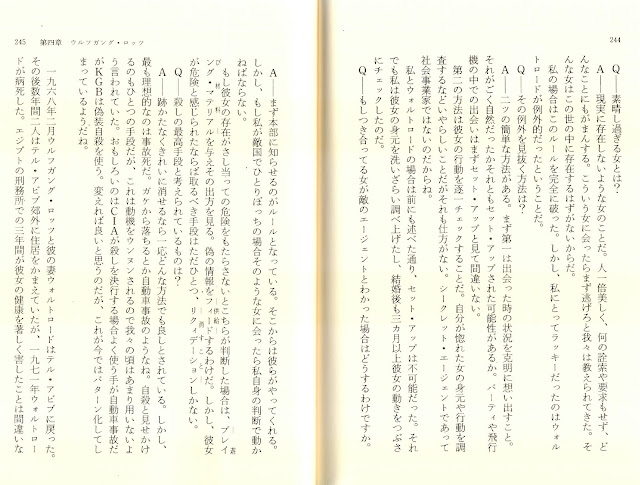 244
Q——素晴し過ぎる女とは?
A——現実に存在しないような女のことだ。人一倍美しく、何の詮索や要求もせず、ど
んなことにもがまんする、こういう女に会ったらまず逃げろと我々は教えられてきた。そ
んな女はこの世の中に存在するはずがないからだ。
私の場合はこのルールを完全に破った。しかし、私にとってラッキーだったのはウォル
トロードが例外的だったということだ。
Q——その例外を見抜く方法は?
A——二ツの簡単な方法がある。まず第一は出会った時の状況を克明に想い出すこと。
それがごく自然だったかそれともセット・アップされた可能性があるか。パーティや飛行
機の中での出会いはまずセット・アップと見て間違いない。
第二の方法は彼女の行動を逐一チェックすることだ。自分が惚れた女の身元や行動を調
査するなどいやらしいことだがそれも仕方がない。シークレット・エージェントであって
社会事業家ではないのだからね。
私とウォルトロードの場合は前にも述べた通り、セット・アップは不可能だった。それ
でも私は彼女の身元を洗いざらい調べ上げたし、結婚後も三カ月以上彼女の動きをつぶさ
にチェックしたのだ。
Q——もしつき合ってる女が敵のエージェントとわかった場合はどうするわけですか。
245 第四章 ウルフガング・ロッツ
A——まず本部に知らせるのがルールとなっている。そこからは彼らがやってくれる。
しかし、もし私が敵国でひとりぼっちの場合そのような女に会ったら私自身の判断で動か
ねばならない。
もし彼女の存在がさし当っての危険をもたらさないとこちらが判断した場合は、プレイ
ング・マテリアルを与えその出方を見る。偽の情報をフィードするわけだ。しかし、彼女
が危険と感じられたならば取るべき手段はただひとつ、リクィデーションしかない。
Q——殺しの最高手段と考えられているものは?
A——跡かたなくきれいに消せるなら一応どんな方法でも良しとされている。しかし、
最も理想的なのは事故死だ。ガケから落ちるとか自動車事故のようなね。自殺と見せかけ
るのもひとつの手段だが、これは動機をウンヌンされるので我々の頃はあまり用いないよ
う言われていた。おもしろいのはCIAが殺しを決行する場合よく使う手が自動車事故だ
がKGBは偽装自殺を使う。変えれば良いと思うのだが、これが今ではパターン化してし
まっているようだね。
一九六八年二月ウルフガング・ロッツと彼の妻ウォルトロードはテル・アビブに戻った。
その後数年間二人はテル・アビブ郊外に住居をかまえていたが、一九七一年ウォルトロー
ドが病死した。エジプトの刑務所での三年間が彼女の健康を著しく害したことは間違いな